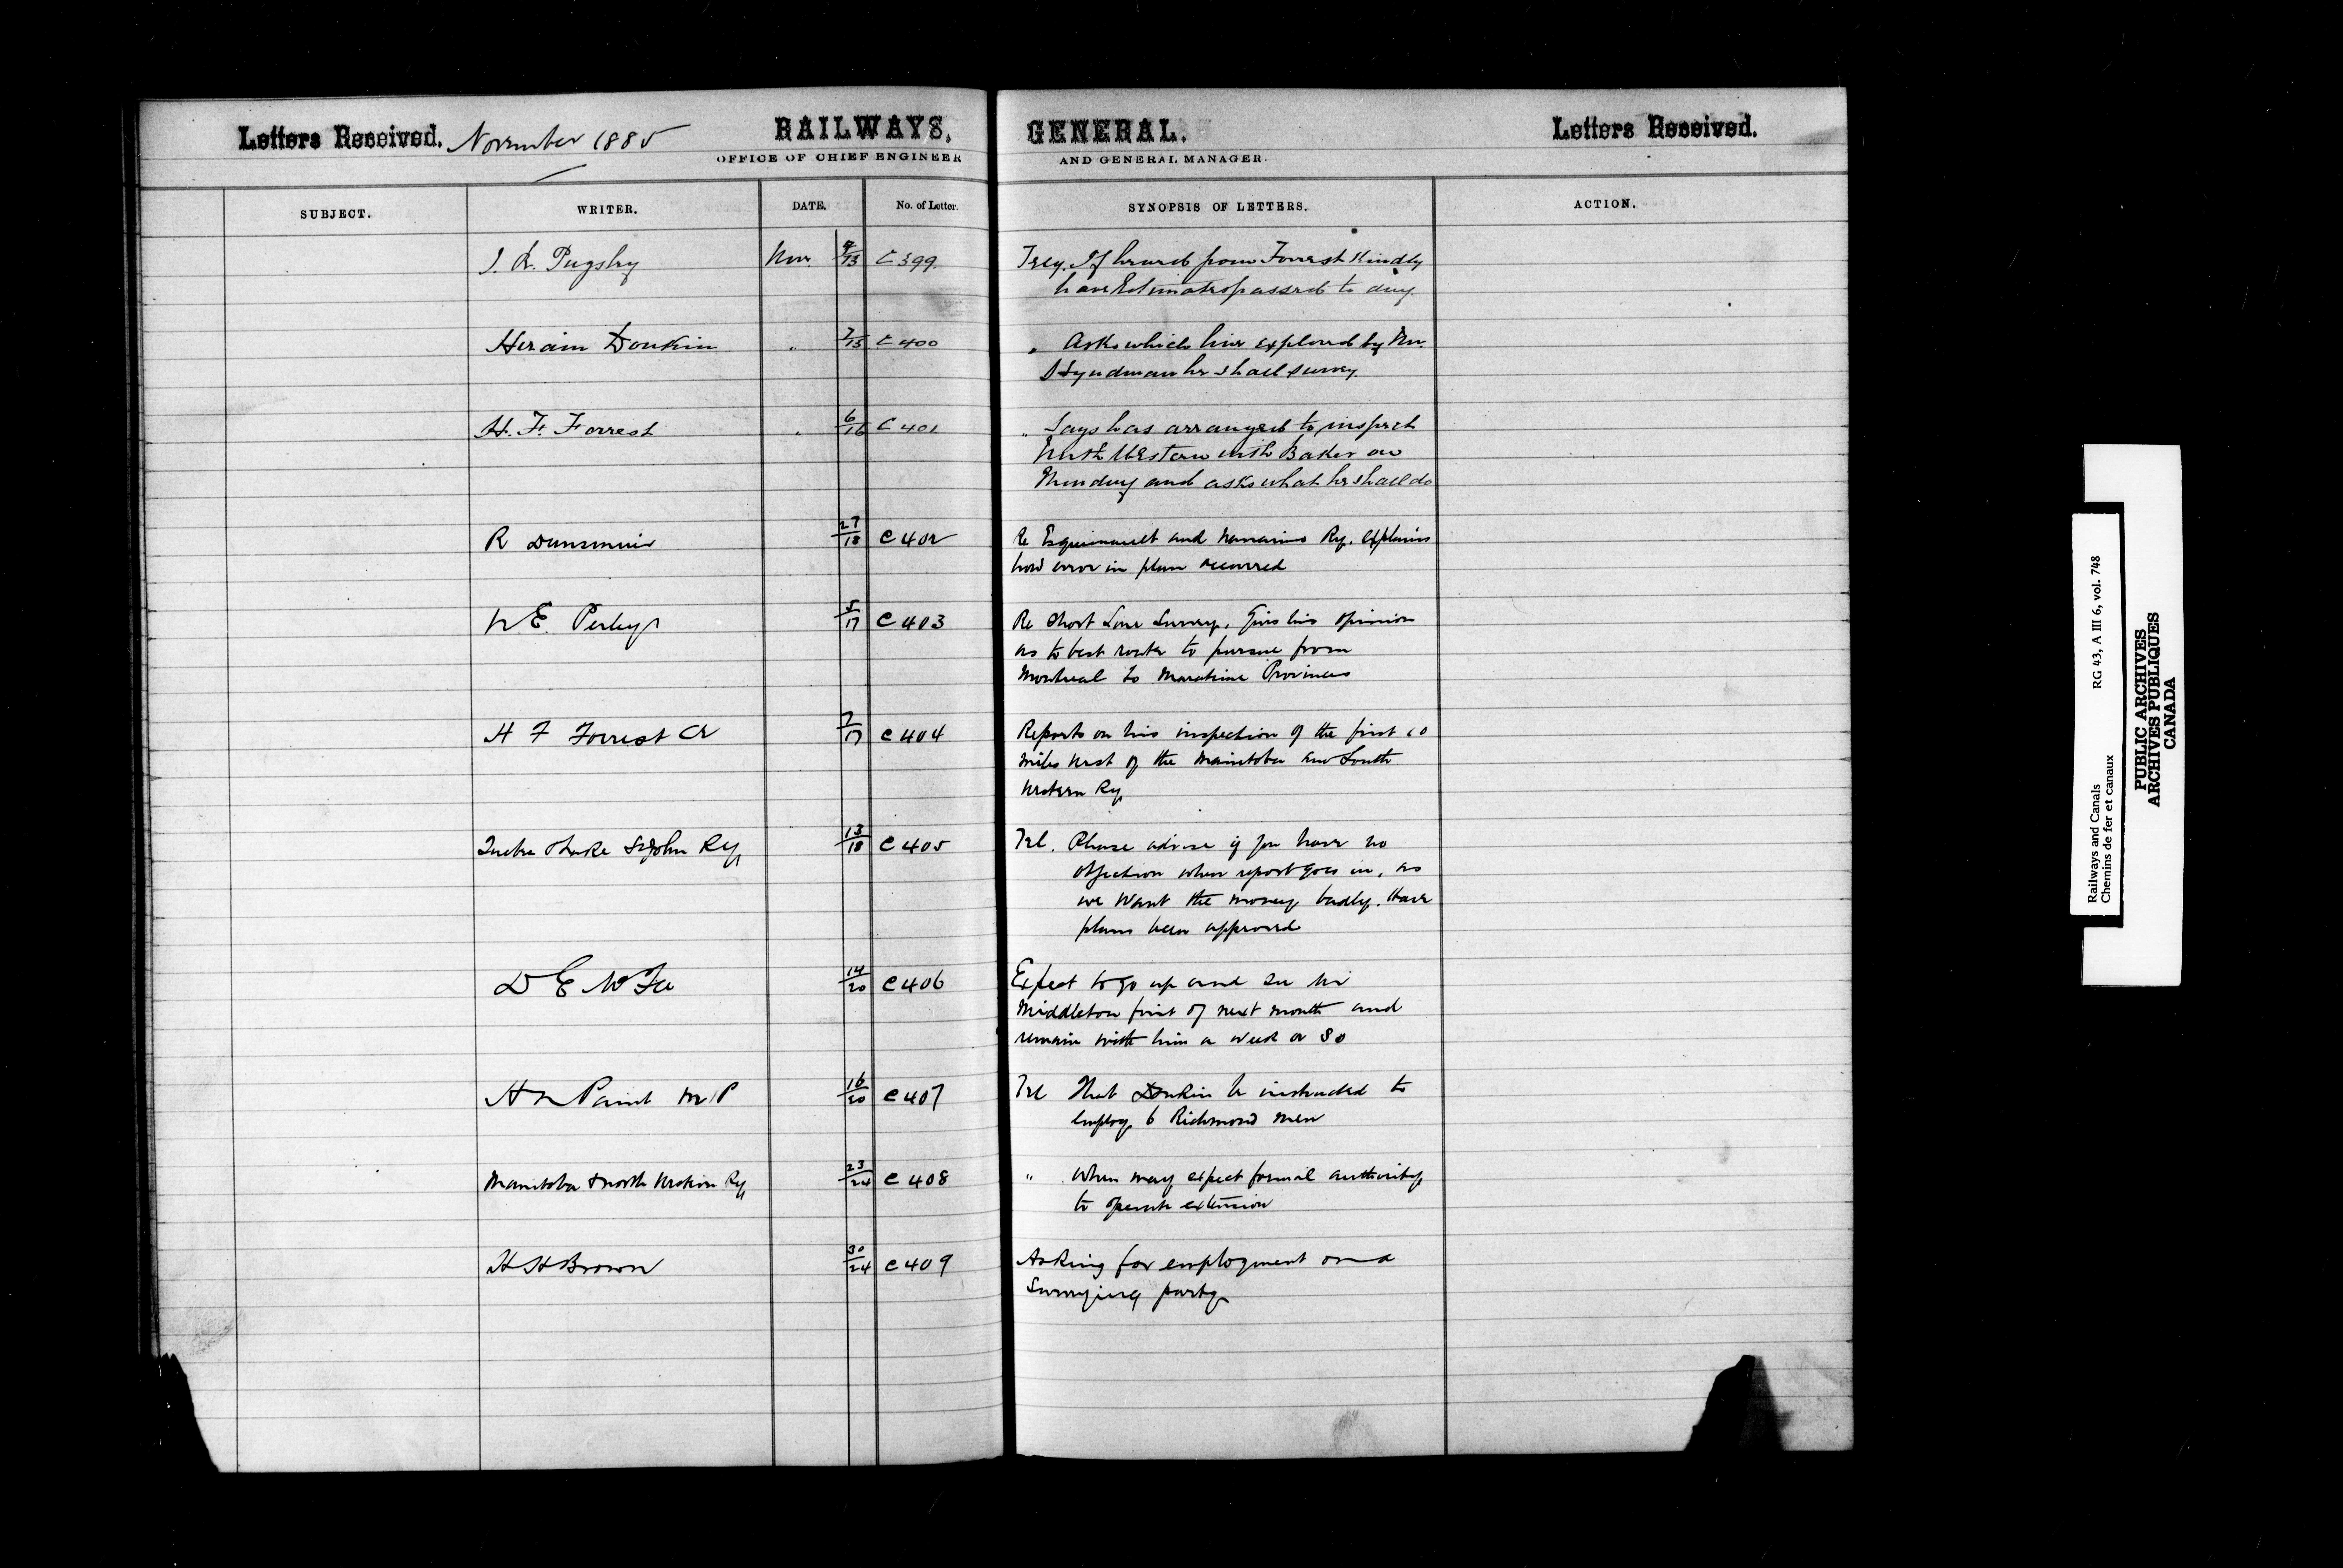 Letters Received. November 1885 RAILWAYS, GENERAL. Letters Received.
OFFICE OF CHIEF ENGINEER AND GENERAL MANAGER.
SUBJECT. WRITER. DATE. No. of Letter. SYNOPSIS OF LETTERS. ACTION.
J. L. Pugsley Nov. 9/13 C 399. If heard from Forrest Kindly
have Estimates passed to day
Hiram Donkin " 7/15 C 400 " Asks which line explored by Mr.
Hyndman he shall survey.
H. F. Forrest " 6/16 C 401 " Says has arranged to inspect
North Western with Baker on
Monday and asks what he shall do
R Dunsmuir 27/18 C 402 Re Esquimault and Nanaimo Ry. Explains
how error in plan occurred
E. Perley 5/17 C 403 Re Short Line Survey. Gives his opinion
as to best route to pursue from
Montreal to Maratime Provinces
H F Forrest CE 7/17 C 404 Reports on his inspection of the first 10
miles west of the Manitoba and South
Western Ry
Quebec & Lake St John Ry 13/18 C 405 Tel. Please advise if you have no
objection when report goes in, as
we want the money badly. Have
plans been approved
D E McFee 14/20 C 406 Expect to go up and see Mr
Middleton first of next month and
remain with him a week or so
H N Paint M P 16/20 C 407 Tel That Donkin be instructed to
employ 6 Richmond men
Manitoba & North Western Ry 23/24 C 408 " When may expect formal authority
to operate extension
H H Brown 30/24 C 409 Asking for employment on a
Surveying party
Railways and Canals RG 43, A III 6, vol. 748
Chemins de fer et canaux
PUBLIC ARCHIVES
ARCHIVES PUBLIQUES
CANADA